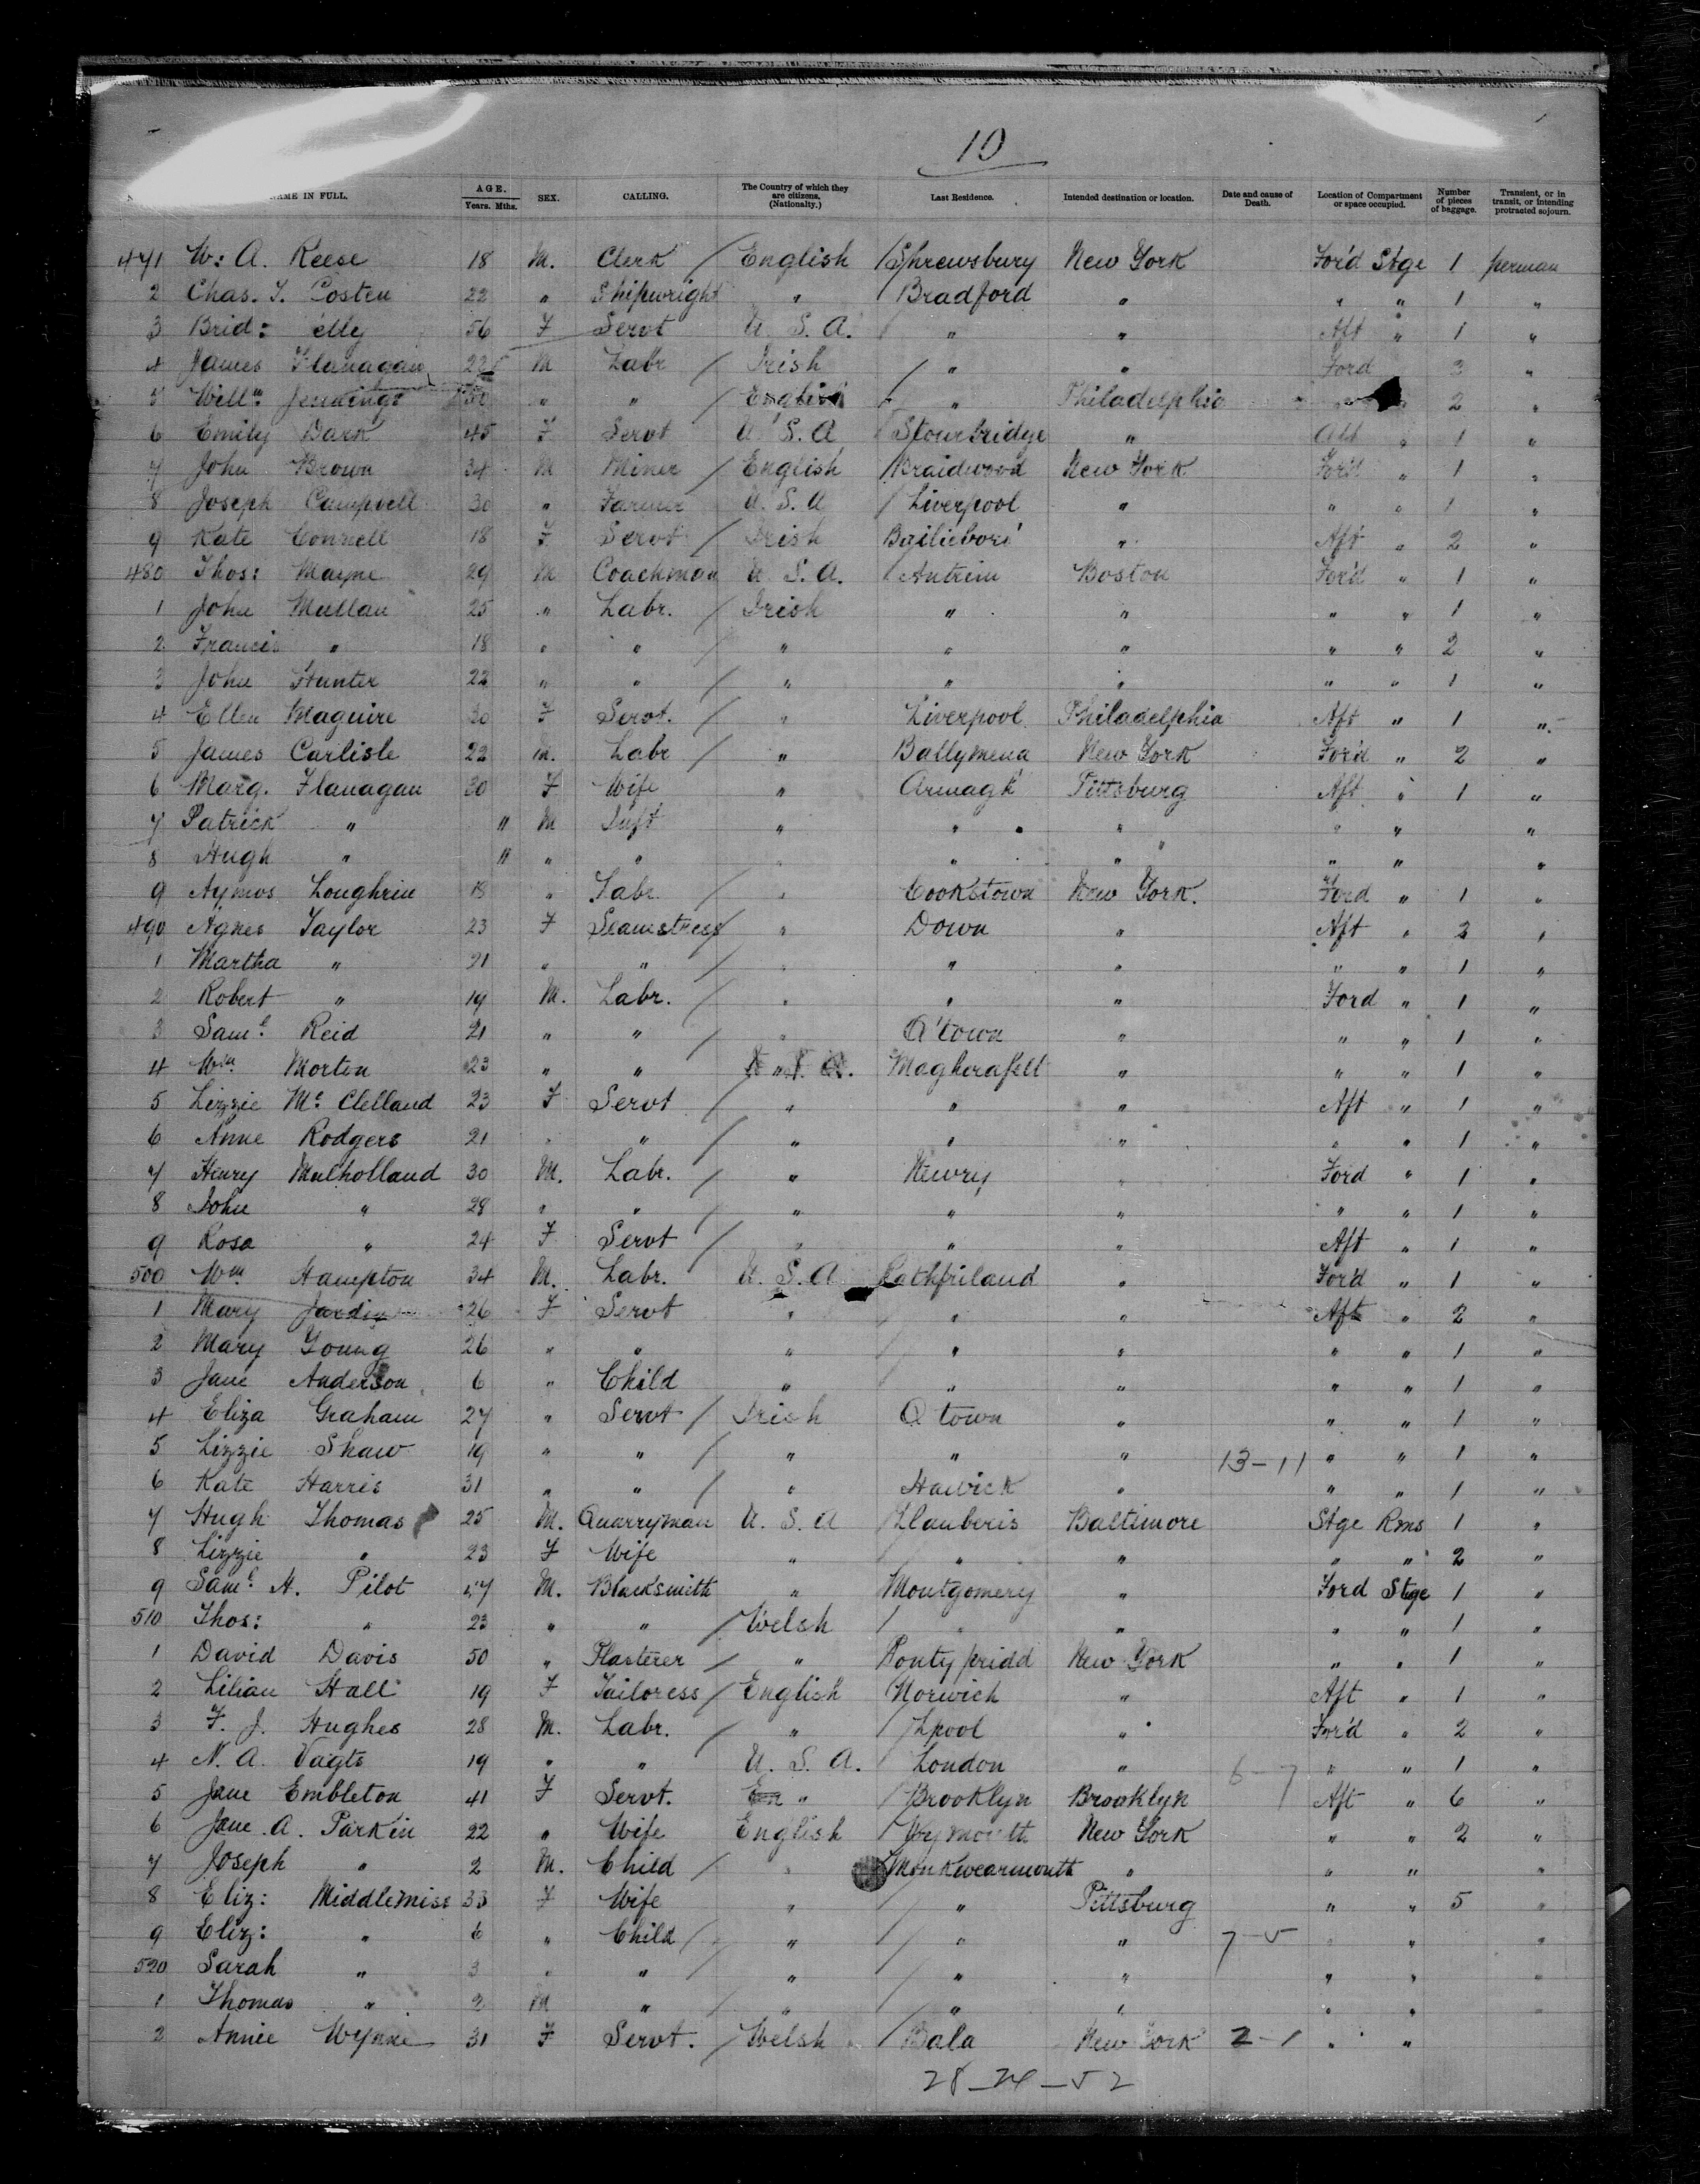 10
NAME IN FULL. AGE. Years. Mths. SEX. CALLING. The Country of which they are citizens. (Nationalty.) Last Residence. Intended destination or location. Date and cause of Death. Location of Compartment or space occupied. Number of pieces of baggage. Transient, or in transit, or intending protracted sojourn.
471 W: A. Reese 18 M. Clerk / English / Shrewsbury New York For'd Stge 1 perman
2 Chas. T. Costen 22 " Shipwright " / Bradford " " " 1 "
3 Brid: elly 56 F Servt U. S. A. / " " Aft " 1 "
4 James Flanagan 22 M Labr / Irish / " " Ford 3 "
5 Willm Jennings " " / English " Philadelphia 2 "
6 Emily Dark 45 F Servt U. S. A / Stourbridge " Aft " 1 "
7 John Brown 34 M Miner / English / Braidwood New York For'd " 1 "
8 Joseph Campbell 30 " Farmer U. S. A / Liverpool " " " 1 "
9 Kate Connell 18 F Servt / Irish Bailieboro' " Aft " 2 "
480 Thos: Mayne 29 M Coachman U. S. A. / Antrim Boston For'd " 1 "
1 John Mullan 25 " Labr. / Irish " " " " 1 "
2 Francis " 18 " " / " " " " " 2 "
3 John Hunter 22 " " / " " " " " 1 "
4 Ellen Maguire 30 F Servt. / " Liverpool Philadelphia Aft " 1 "
5 James Carlisle 22 M. Labr / " Ballymena New York For'd " 2 "
6 Marg. Flanagan 30 F Wife " Armagh Pittsburg Aft " 1 "
7 Patrick " 11 M Inft " " " " " "
8 Hugh " 11 " " " " " " " "
9 Aymos Loughrin 18 " Labr. / " Cookstown New York. Ford " 1 "
490 Agnes Taylor 23 F Seamstress / " Down " Aft " 2 "
1 Martha " 21 " " / " " " " " 1 "
2 Robert " 19 M. Labr. / " " " Ford " 1 "
3 Saml Reid 21 " " / " Q'town " " " 1 "
4 Wm Morton 23 " " U. S. A. Magherafelt " " " 1 "
5 Lizzie Mc Clelland 23 F Servt / " " " Aft " 1 "
6 Anne Rodgers 21 " " / " " " " " 1 "
7 Henry Mulholland 30 M. Labr. / " Newry " Ford " 1 "
8 John " 28 " " / " " " " " 1 "
9 Rosa " 24 F Servt / " " " Aft " 1 "
500 Wm Hampton 34 M. Labr. U. S. A Rathfriland " For'd " 1 "
1 Mary Jardin 26 F Servt " / " " Aft " 2 "
2 Mary Young 26 " " " / " " " " 1 "
3 Jane Anderson 6 " Child " / " " " " 1 "
4 Eliza Graham 27 " Servt / Irish Q town " " " 1 "
5 Lizzie Shaw 19 " " / " " " 13-11 " " 1 "
6 Kate Harris 31 " " / " Hawick " " " 1 "
7 Hugh Thomas 25 M. Quarryman U. S. A / Llanberis Baltimore Stge Rms 1 "
8 Lizzie " 23 F Wife " / " " " " 2 "
9 Saml H. Pilot 57 M. Blacksmith " / Montgomery " Ford Stge 1 "
510 Thos: " 23 " " / Welsh / " " " " 1 "
1 David Davis 50 " Plasterer / " Ponty pridd New York " " 1 "
2 Lilian Hall 19 F Tailoress / English / Norwich " Aft " 1 "
3 F. J. Hughes 28 M. Labr. / " / Lpool " For'd " 2 "
4 N. A. Vagts 19 " " U. S. A. / London " 6-7 " " 1 "
5 Jane Embleton 41 F Servt. En " / Brooklyn Brooklyn Aft " 6 "
6 Jane A. Parkin 22 " Wife English / Wymouth New York " " 2 "
7 Joseph " 2 M. Child / " Monkwearmouth " " " "
8 Eliz: Middlemiss 33 F Wife " / " Pittsburg " " 5 "
9 Eliz: " 6 " Child / " / " " 7-5 " " "
520 Sarah " 3 " " / " / " " " " "
1 Thomas " 2 M " / " / " " " " "
2 Annie Wynne 31 F Servt. / Welsh / Bala New York 2-1 " "
28-24-52